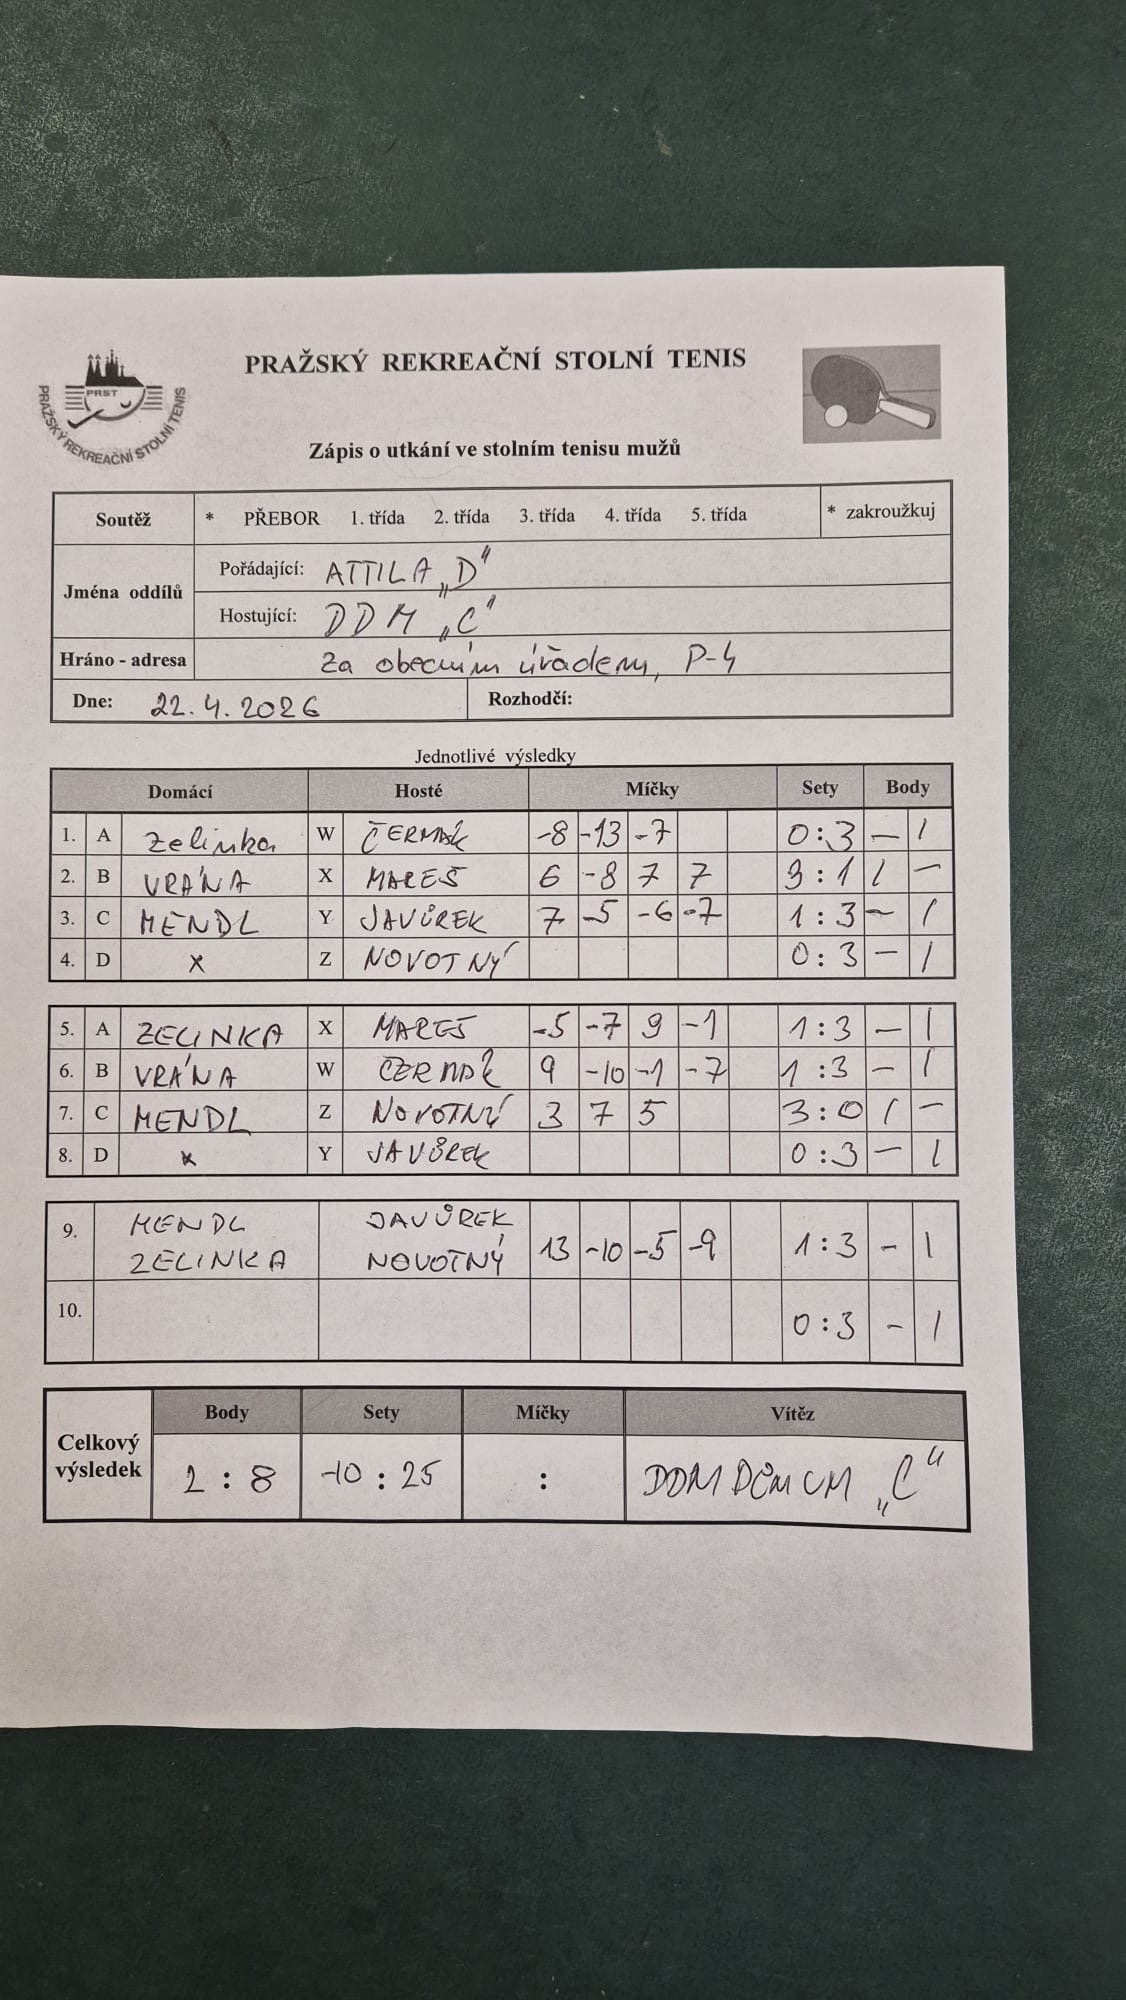 PRST
PRAŽSKÝ REKREAČNÍ STOLNÍ TENIS
PRAŽSKÝ REKREAČNÍ STOLNÍ TENIS
Zápis o utkání ve stolním tenisu mužů
Soutěž * PŘEBOR 1. třída 2. třída 3. třída 4. třída 5. třída * zakroužkuj
Jména oddílů
Pořádající: ATTILA „D"
Hostující: DDM „C"
Hráno - adresa Za obecním úřadem, P-4
Dne: 22.4.2026 Rozhodčí:
Jednotlivé výsledky
Domácí Hosté Míčky Sety Body
1. A Zelinka W ČERMÁK -8 -13 -7 0:3 – 1
2. B VRÁNA X MAREŠ 6 -8 7 7 3:1 1 –
3. C MENDL Y JAVŮREK 7 -5 -6 -7 1:3 – 1
4. D x Z NOVOTNÝ 0:3 – 1
5. A ZELINKA X MAREŠ -5 -7 9 -1 1:3 – 1
6. B VRÁNA W ČERMÁK 9 -10 -1 -7 1:3 – 1
7. C MENDL Z NOVOTNÝ 3 7 5 3:0 1 –
8. D x Y JAVŮREK 0:3 – 1
9. MENDL JAVŮREK
ZELINKA NOVOTNÝ 13 -10 -5 -9 1:3 – 1
10. 0:3 – 1
Celkový výsledek
Body Sety Míčky Vítěz
2 : 8 10 : 25 : „C"